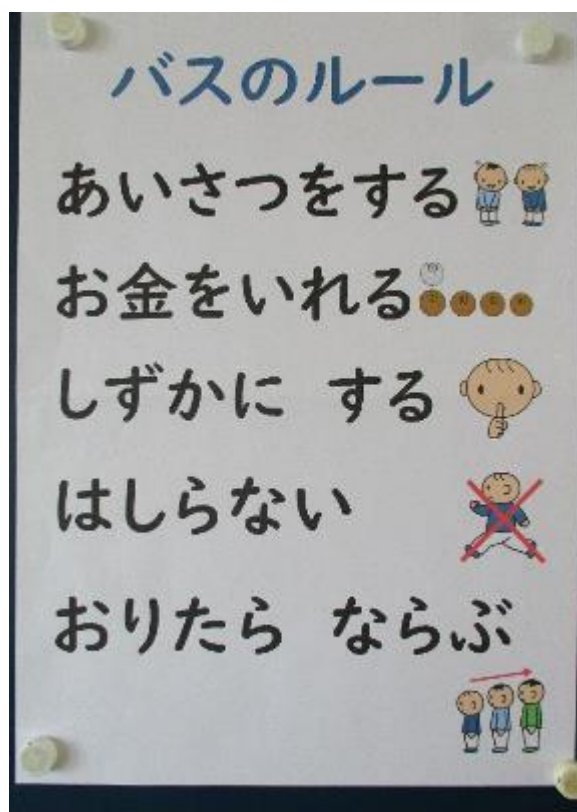 バスのルール
あいさつをする
お金をいれる
しずかに する
はしらない
おりたら ならぶ